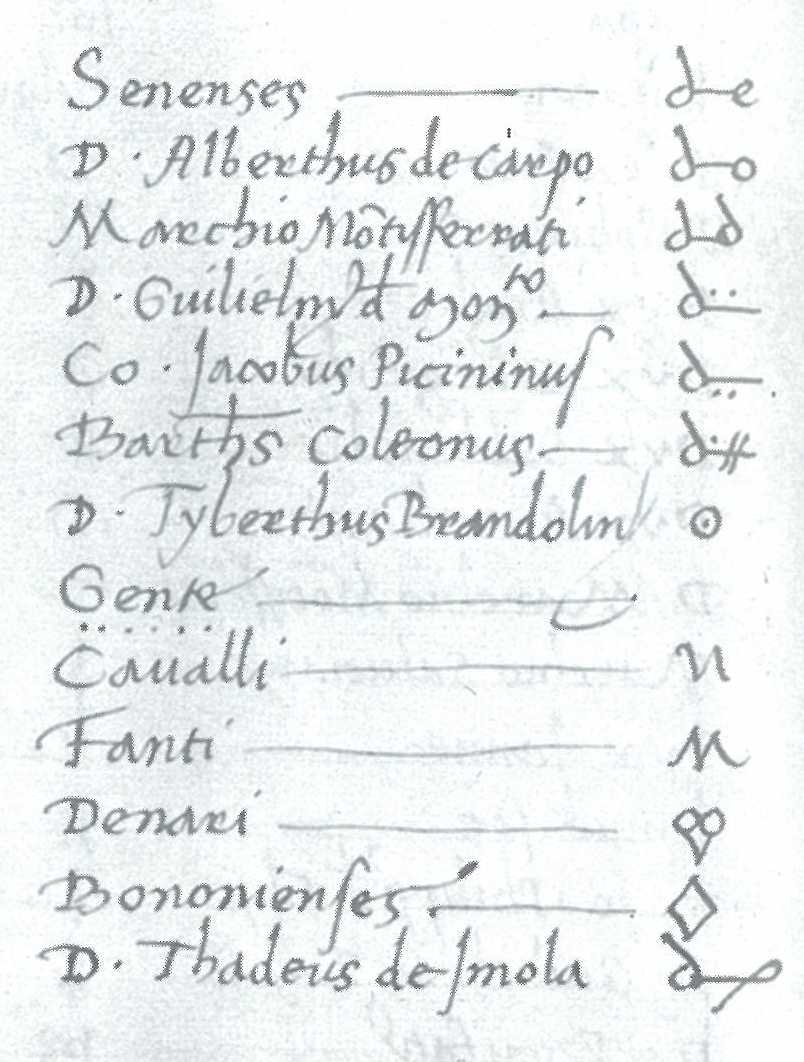 Senenses
D. Alberthus de Carpo
Marchio Mōtisferrati
D. Guilielm' d
Co. Jacobus Picininus
Barths Coleonus
D. Tyberthus Brandolin
Gente
Caualli
Fanti
Denari
Bononienses
D. Thadeus de Imola